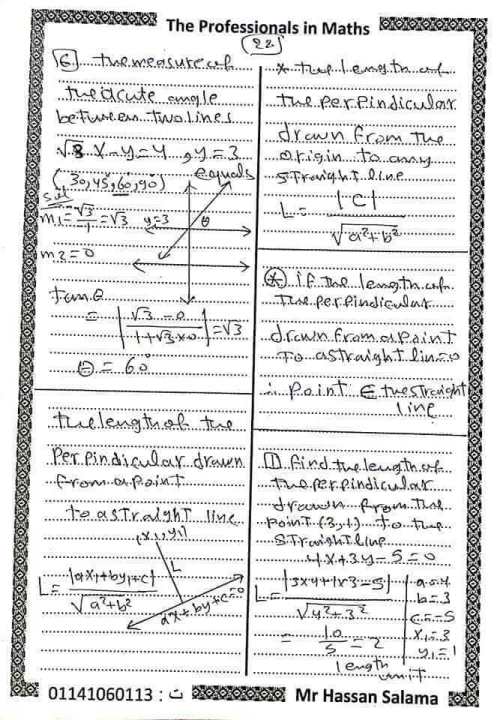 The Professionals in Maths
22
6 the measure of
the acute angle
between two lines
√3 x - y = 4 , y = 3
equals
(30, 45, 60, 90)
Sol
m1 = √3/-1 = √3 y=3 θ
m2 = 0
tan θ
= |√3 - 0 / 1+√3×0| = √3
θ = 60°
the length of the
Perpindicular drawn
from a point
to a straight line
(x1, y1)
L
L = |ax1+by1+c| / √a²+b²
ax+by+c=0
* the length of
the perpindicular
drawn from the
origin to any
straight line
L = |c| / √a²+b²
* if the length of
the perpindicular
drawn from a point
To a straight line = 0
∴ Point ∈ the straight
line
1 find the length of
the perpindicular
drawn from the
point (3,1) to the
straight line
4x+3y-5=0
L = |3×4+1×3-5| / √4²+3²
= 10/5 = 2
length
unit
a=4
b=3
c=-5
x1=3
y1=1
01141060113 : ت
Mr Hassan Salama